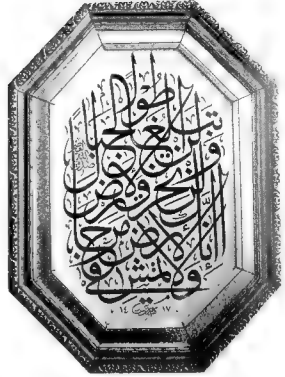 ولا تمش في
الأرض مرحا
إنك لن تخرق الأرض
ولن تبلغ
الجبال طولا
١٤١٧